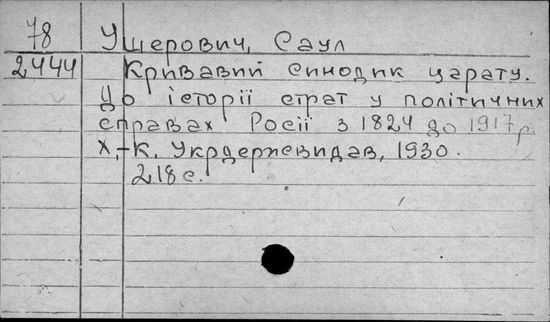 78 Ушерович, Саул
2444 Кривавий синодик царату.
До історії страт у політичних
справах Росії з 1824 до 1917 р.
Х.-К, Укрдержвидав, 1930.
218 с.